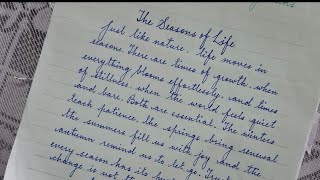 The Seasons of Life
Just like nature, life moves in
seasons. There are times of growth, when
everything blooms effortlessly, and times
of stillness, when the world feels quiet
and bare. Both are essential. The winters
teach patience, the springs bring renewal
the summers fill us with joy and the
autumn remind us to let go. Trust
every season has its
change is not the